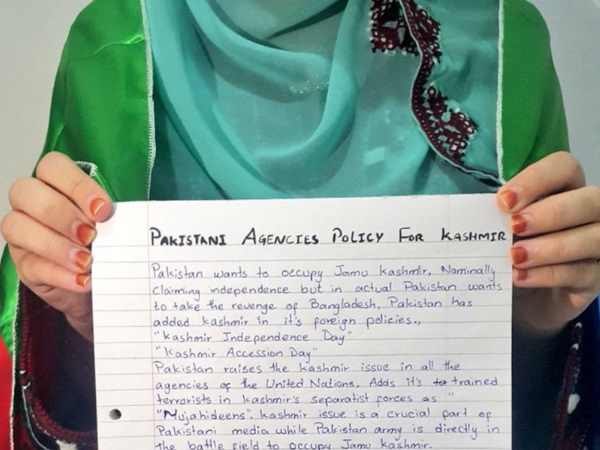 PAKISTANI AGENCIES POLICY FOR KASHMIR
Pakistan wants to occupy Jamu kashmir. Nominally
claiming independence but in actual Pakistan wants
to take the revenge of Bangladesh. Pakistan has
added kashmir in it's foreign policies.,
"Kashmir Independence Day"
"Kashmir Accession Day"
Pakistan raises the kashmir issue in all the
agencies of the United Nations. Adds it's trained
terrorists in kashmir's separatist forces as "
"Mujahideens". kashmir issue is a crucial part of
Pakistani media while Pakistan army is directly in
the battle field to occupy Jamu kashmir.